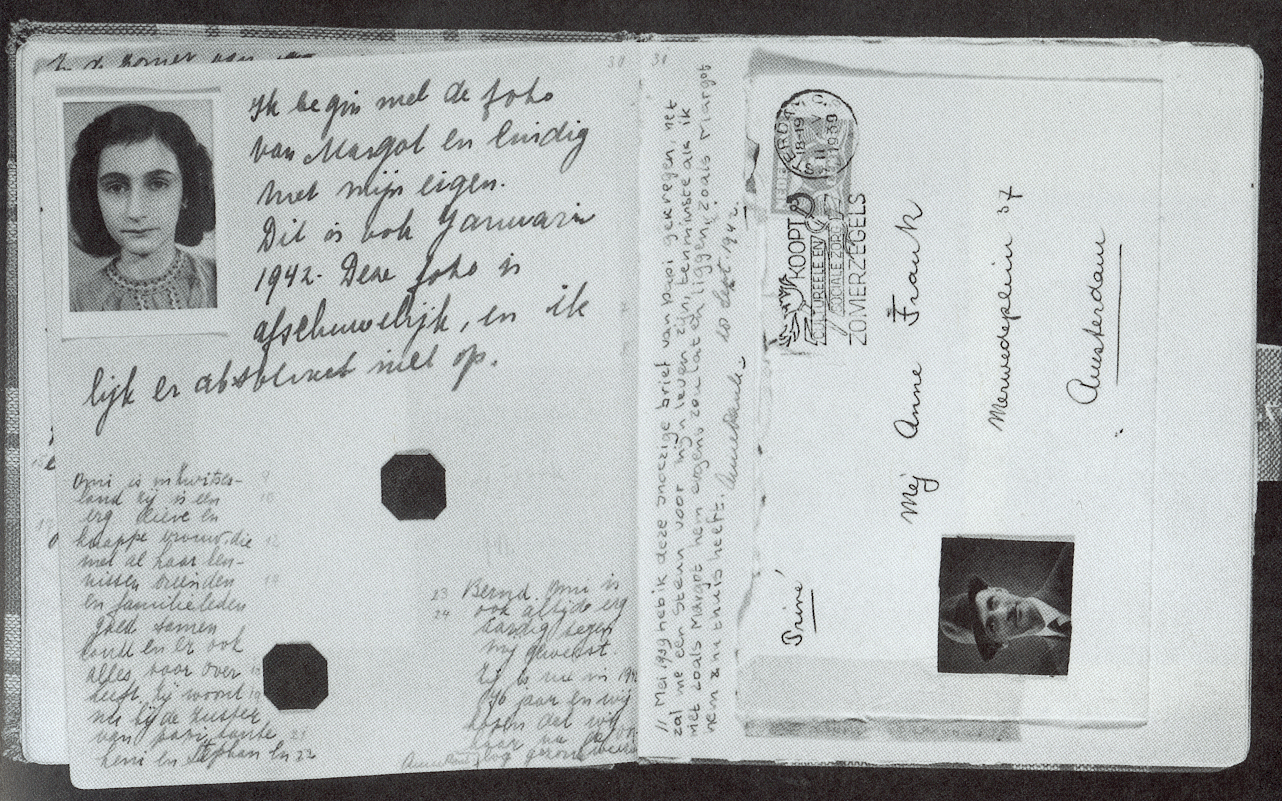 Ik begin met de foto
van Margot en eindig
met mijn eigen.
Dit is ook Januari
1942. Deze foto is
afschuwelijk, en ik
lijk er absoluut niet op.
Omi is in Zwitser-
land zij is een
erg lieve en
knappe vrouw, die
met al haar ken-
nissen vrienden
en familieleden
goed samen
en er ook
alles voor over
heeft, zij woont
nu bij de zuster
van paps, tante
Leni en Stephan en
23 Bernd. Omi is
24 ook altijd erg
aardig tegen
mij geweest.
Zij is nu in
76 jaar en wij
hopen dat wij
haar na de
gezond
30
31
11 Mei 1939 heb ik deze snoezige brief van papi gekregen, het
zal me een steun voor mijn leven zijn, tenminste als ik
niet zoals Margot hem ergens zou laten liggen, zoals Margot
hem ante thuis heeft. Anne Frank. 20 Sept. 1942.
18-19
11 V
1939
KOOPT
CULTUREELE EN
SOCIALE ZORG
ZOMERZEGELS
Mej Anne Frank
Merwedeplein 37
Amsterdam
Privé